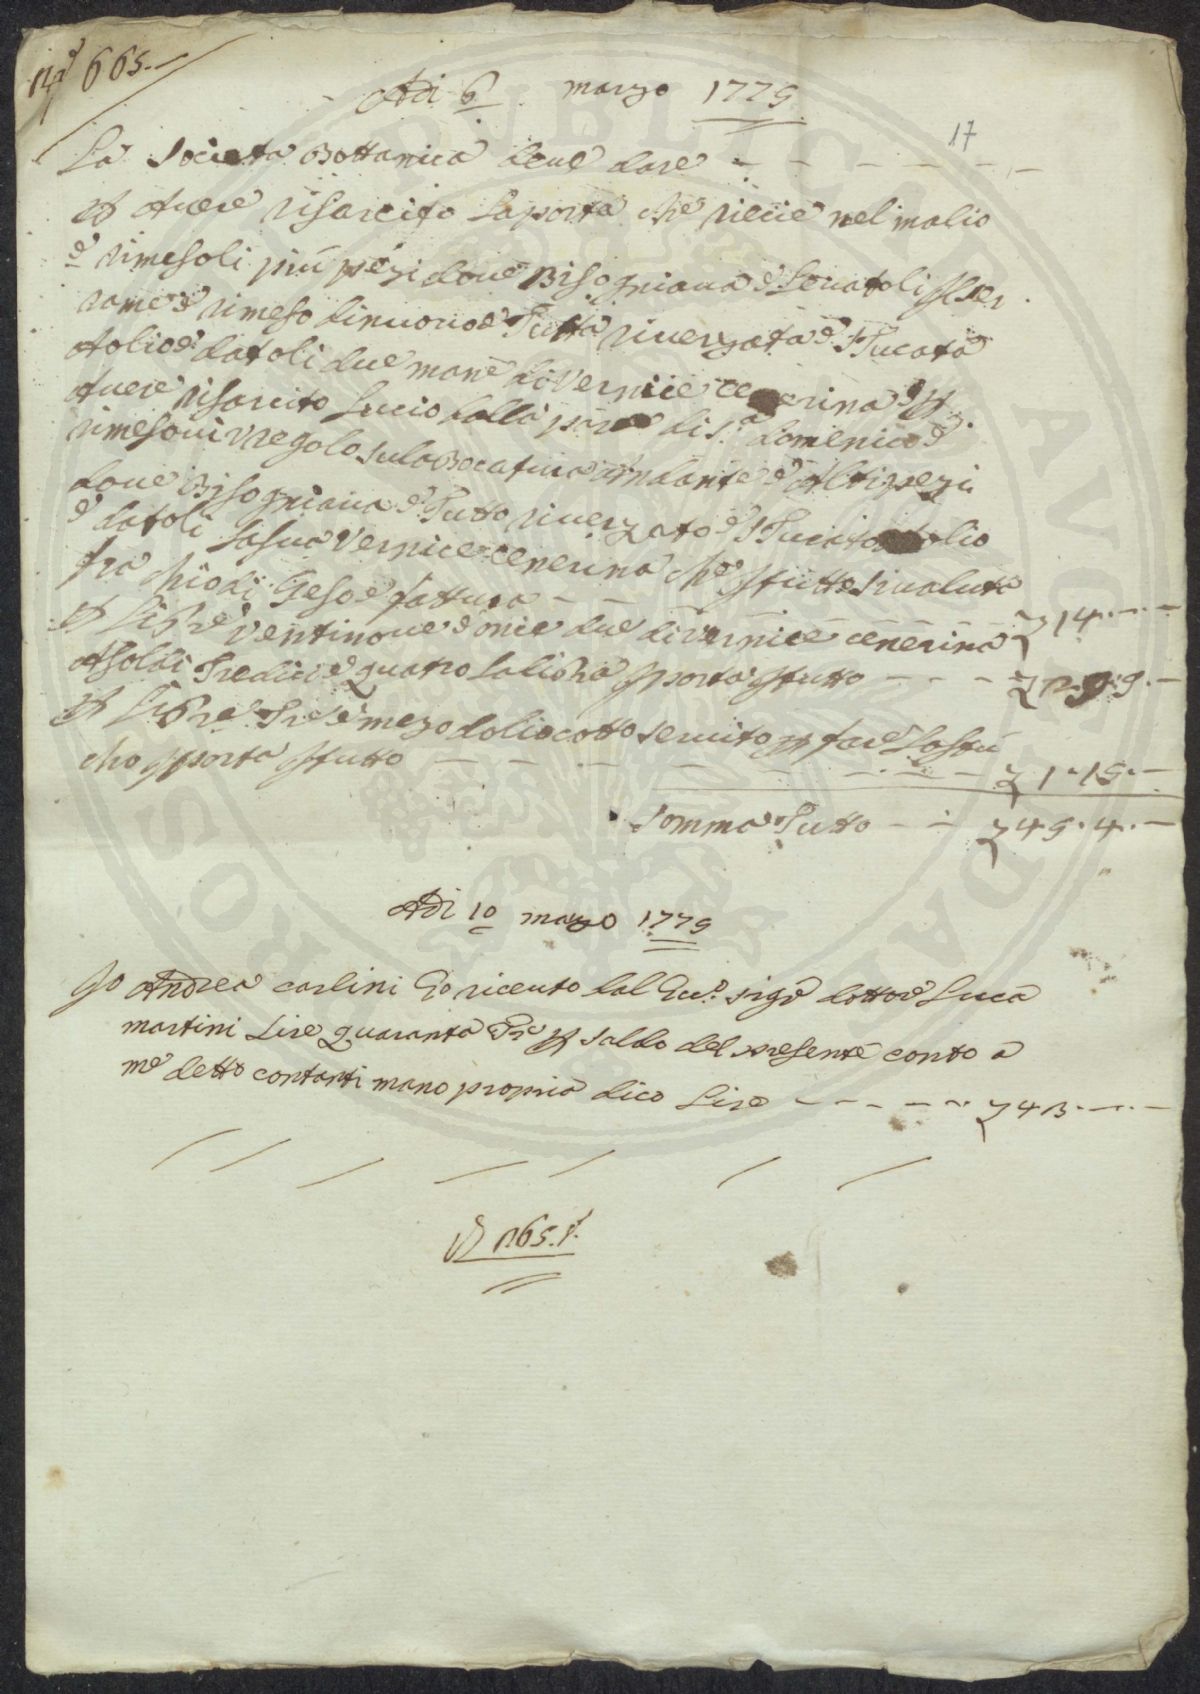 665.
Adi 6 marzo 1779
17
La Società Bottanica deve dare
P avere risarcito la porta che riecie nel
e rimesoli più pezi dove Bisogniava e levatoli
rame e rimeso di nuovo e Tutta riverzata e Stucata
Aolio e datoli due mane di Vernicie cenerina e P
Avere risarcito Lucio dalla parte di S.a Domenica e
rimesovi regolo andante e Altri pezi
dove Bisogniava e Tutto riverzato e Stucato Aolio
e datoli la sua Vernice cenerina che P tutto si valuta
fra chiodi Geso e fattura £ 14
P Libre Ventinove e oncie due di vernice cenerina
A soldi Tredici e quatro la libra Pporta P tutto
P Libre Tre e mezo dolio cotto servito P fare Lostu
cho Pporta P tutto £ 1.15
Somma Tutto £ 45.4
Adi 10 marzo 1779
Io Andrea Carlini o riceuto dal Ecc.o Sigr dottore Luca
martini Lire quaranta Tre P saldo del presente conto a
me detto contanti mano propria dico Lire £ 43